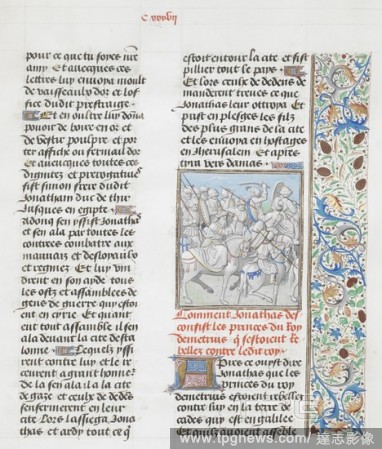 C. xxviii
pour ce que tu soyes nre
amy Et avecques ces
lettres luy envoya moult
de vaisseaulx dor et lof
fice dudit prestraige
Et en oultre luy dōna
pouoir de boire en or et
de vestir poulpre et por
ter affiche ou fermail dor
et avecques toutes ces
dignites et prerogatives
fist simon frere dudit
Jonathan duc de thir
Jusques en egipte
adonq sen yssist Jonathas
et sen ala par toutes les
contrees combatre aux
mauvais et desloyaulx
et regniez Et luy vin
drent en son ayde tous
les ostz et assamblees de
gens de guerre qui esto
ent en cyrie Et quant
eut tout assemble il sen
ala devant la cite desca
lonne Lesquelz yssi
rent contre luy et le re
ceurent a grant honneʳ
De la sen ala il a la cite
de gaze et ceulx de dedēs
senfermerent en leur
cite Lors lassiega Jona
thas et ardy tout ce qͥ
estoit entour la cite et fist
pillier tout le pays
Et lors ceulx de dedens de
manderent treves ce que
Jonathas leur ottroya Et
prist en plesges les filz
des plus grans de la cite
et les envoya en hostages
en Jherusalem Et apres
tira vers damas
Comment Jonathas des
confist les princes du Roy
demetrius qͥ sestoient Re
bellez contre ledit roy
Apres ce ouyst dire
Jonathas que les
princes du roy
demetrius estoient rebellez
contre luy en la terre de
cades qui est en galilee
Et quilz avoient assēble
www.tpgnews.com
達志影像